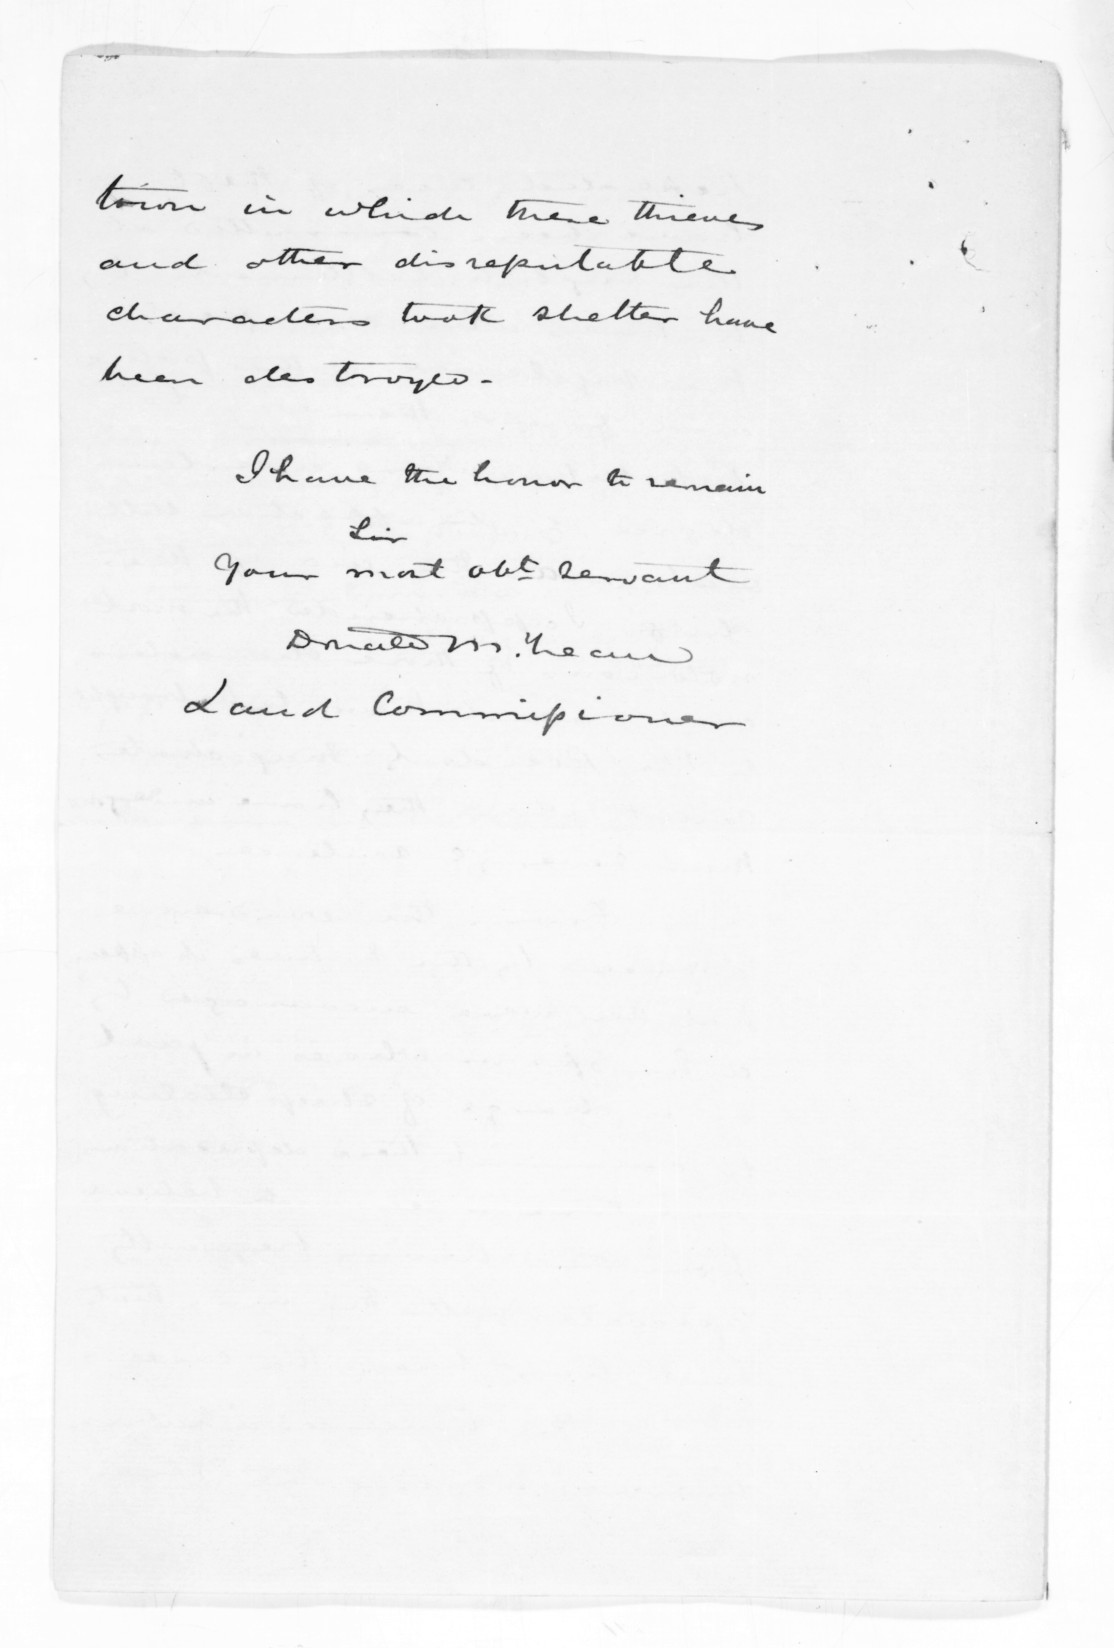 town in which these thieves
and other disreputable
characters took shelter have
been destroyed -
I have the honor to remain
Sir
Your most obt. servant
Donald McLean
Land Commissioner